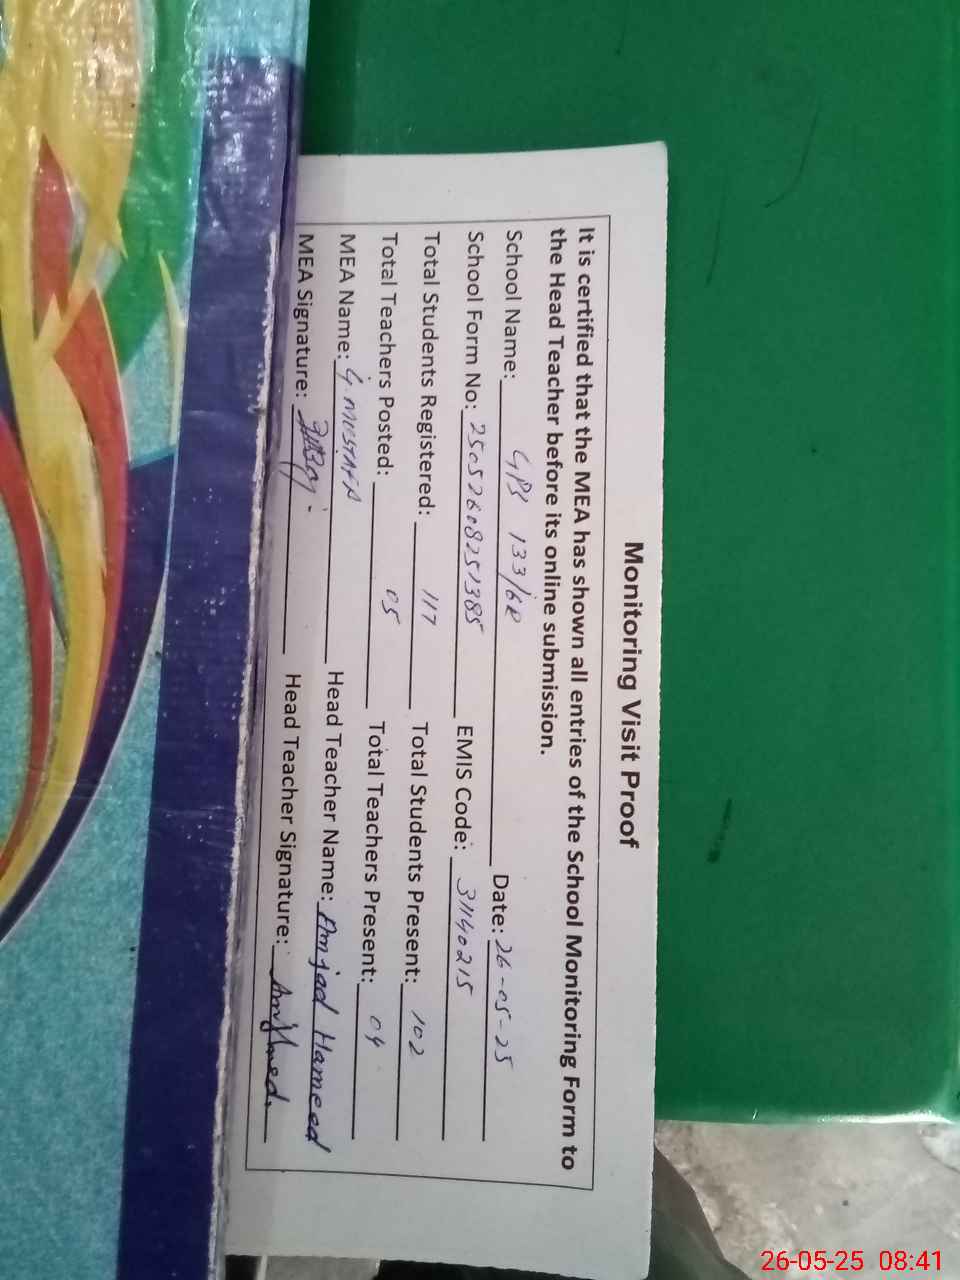 Monitoring Visit Proof
It is certified that the MEA has shown all entries of the School Monitoring Form to
the Head Teacher before its online submission.
School Name: GPS 133/6R Date: 26-05-25
School Form No: 25052608251385 EMIS Code: 31140215
Total Students Registered: 117 Total Students Present: 102
Total Teachers Posted: 05 Total Teachers Present: 04
MEA Name: G. MUSTAFA Head Teacher Name: Amjad Hameed
MEA Signature: Head Teacher Signature:
26-05-25 08:41